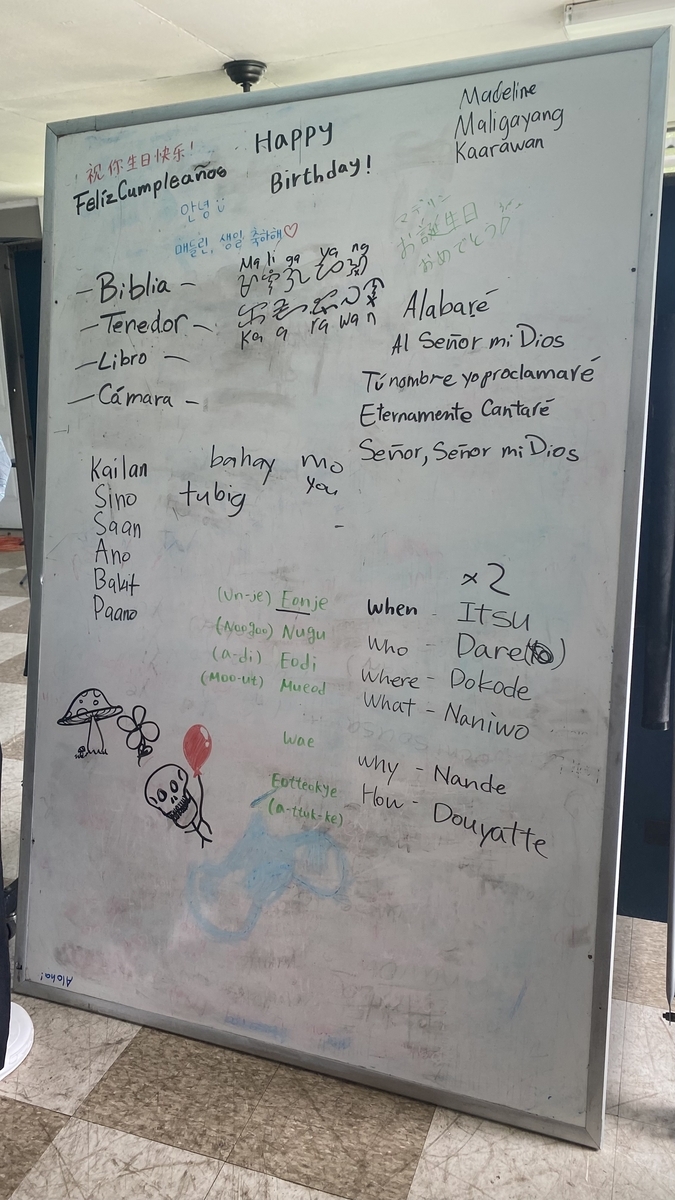 祝你生日快乐!
Feliz Cumpleaños
Happy
Birthday!
Madeline
Maligayang
Kaarawan
안녕
매들린, 생일 축하해♡
マデリン
お誕生日
おめでとう
- Biblia -
- Tenedor -
- Libro -
- Cámara -
Ma li ga ya ng
Ka a ra wa n
Alabaré
Al Señor mi Dios
Tú nombre yo proclamaré
Eternamente Cantaré
Señor, Señor mi Dios
Kailan
Sino
Saan
Ano
Bakit
Paano
bahay mo
tubig you
(Un-je) Eonje
(Noogoo) Nugu
(a-di) Eodi
(Moo-ut) Mueod
Wae
Eotteokye
(a-ttuk-ke)
x2
When - Itsu
Who - Dare
Where - Dokode
What - Naniwo
Why - Nande
How - Douyatte
Aloha!